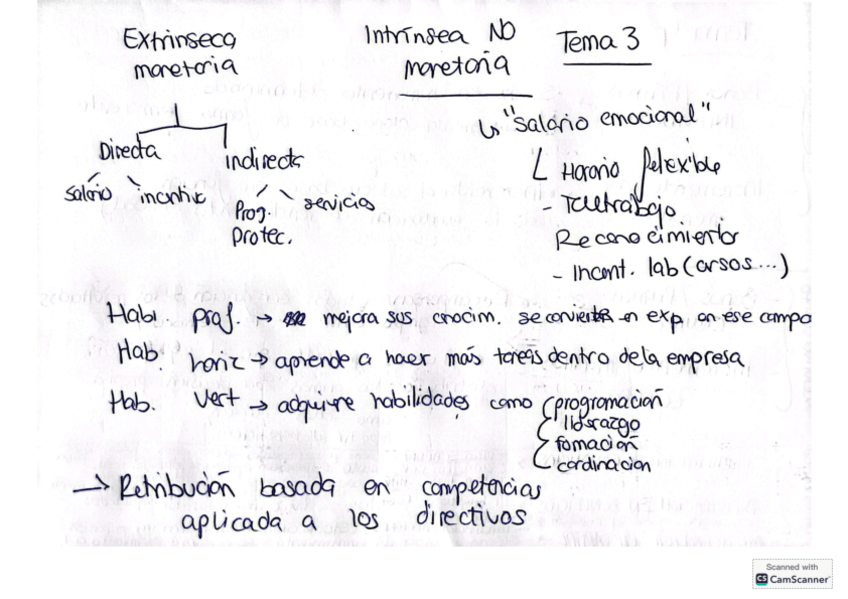 Extrinseca
monetoria
Directa
indirecta
Salario
incentiv
Prog.
Protec.
servicios
Intrínsea NO
monetoria
Tema 3
↳ "Salario emocional"
Horario felexible
- Teletrabajo
Reconocimiento
- Incent. lab (cursos...)
Hab. prof. → mejora sus conocim. se convierte en exp. en ese campo
Hab. horiz → aprende a hacer más tareas dentro de la empresa
Hab. Vert → adquire habilidades como
programación
liderazgo
fomación
cordinacion
→ Retribución basada en competencias
aplicada a los directivos
Scanned with
CS CamScanner